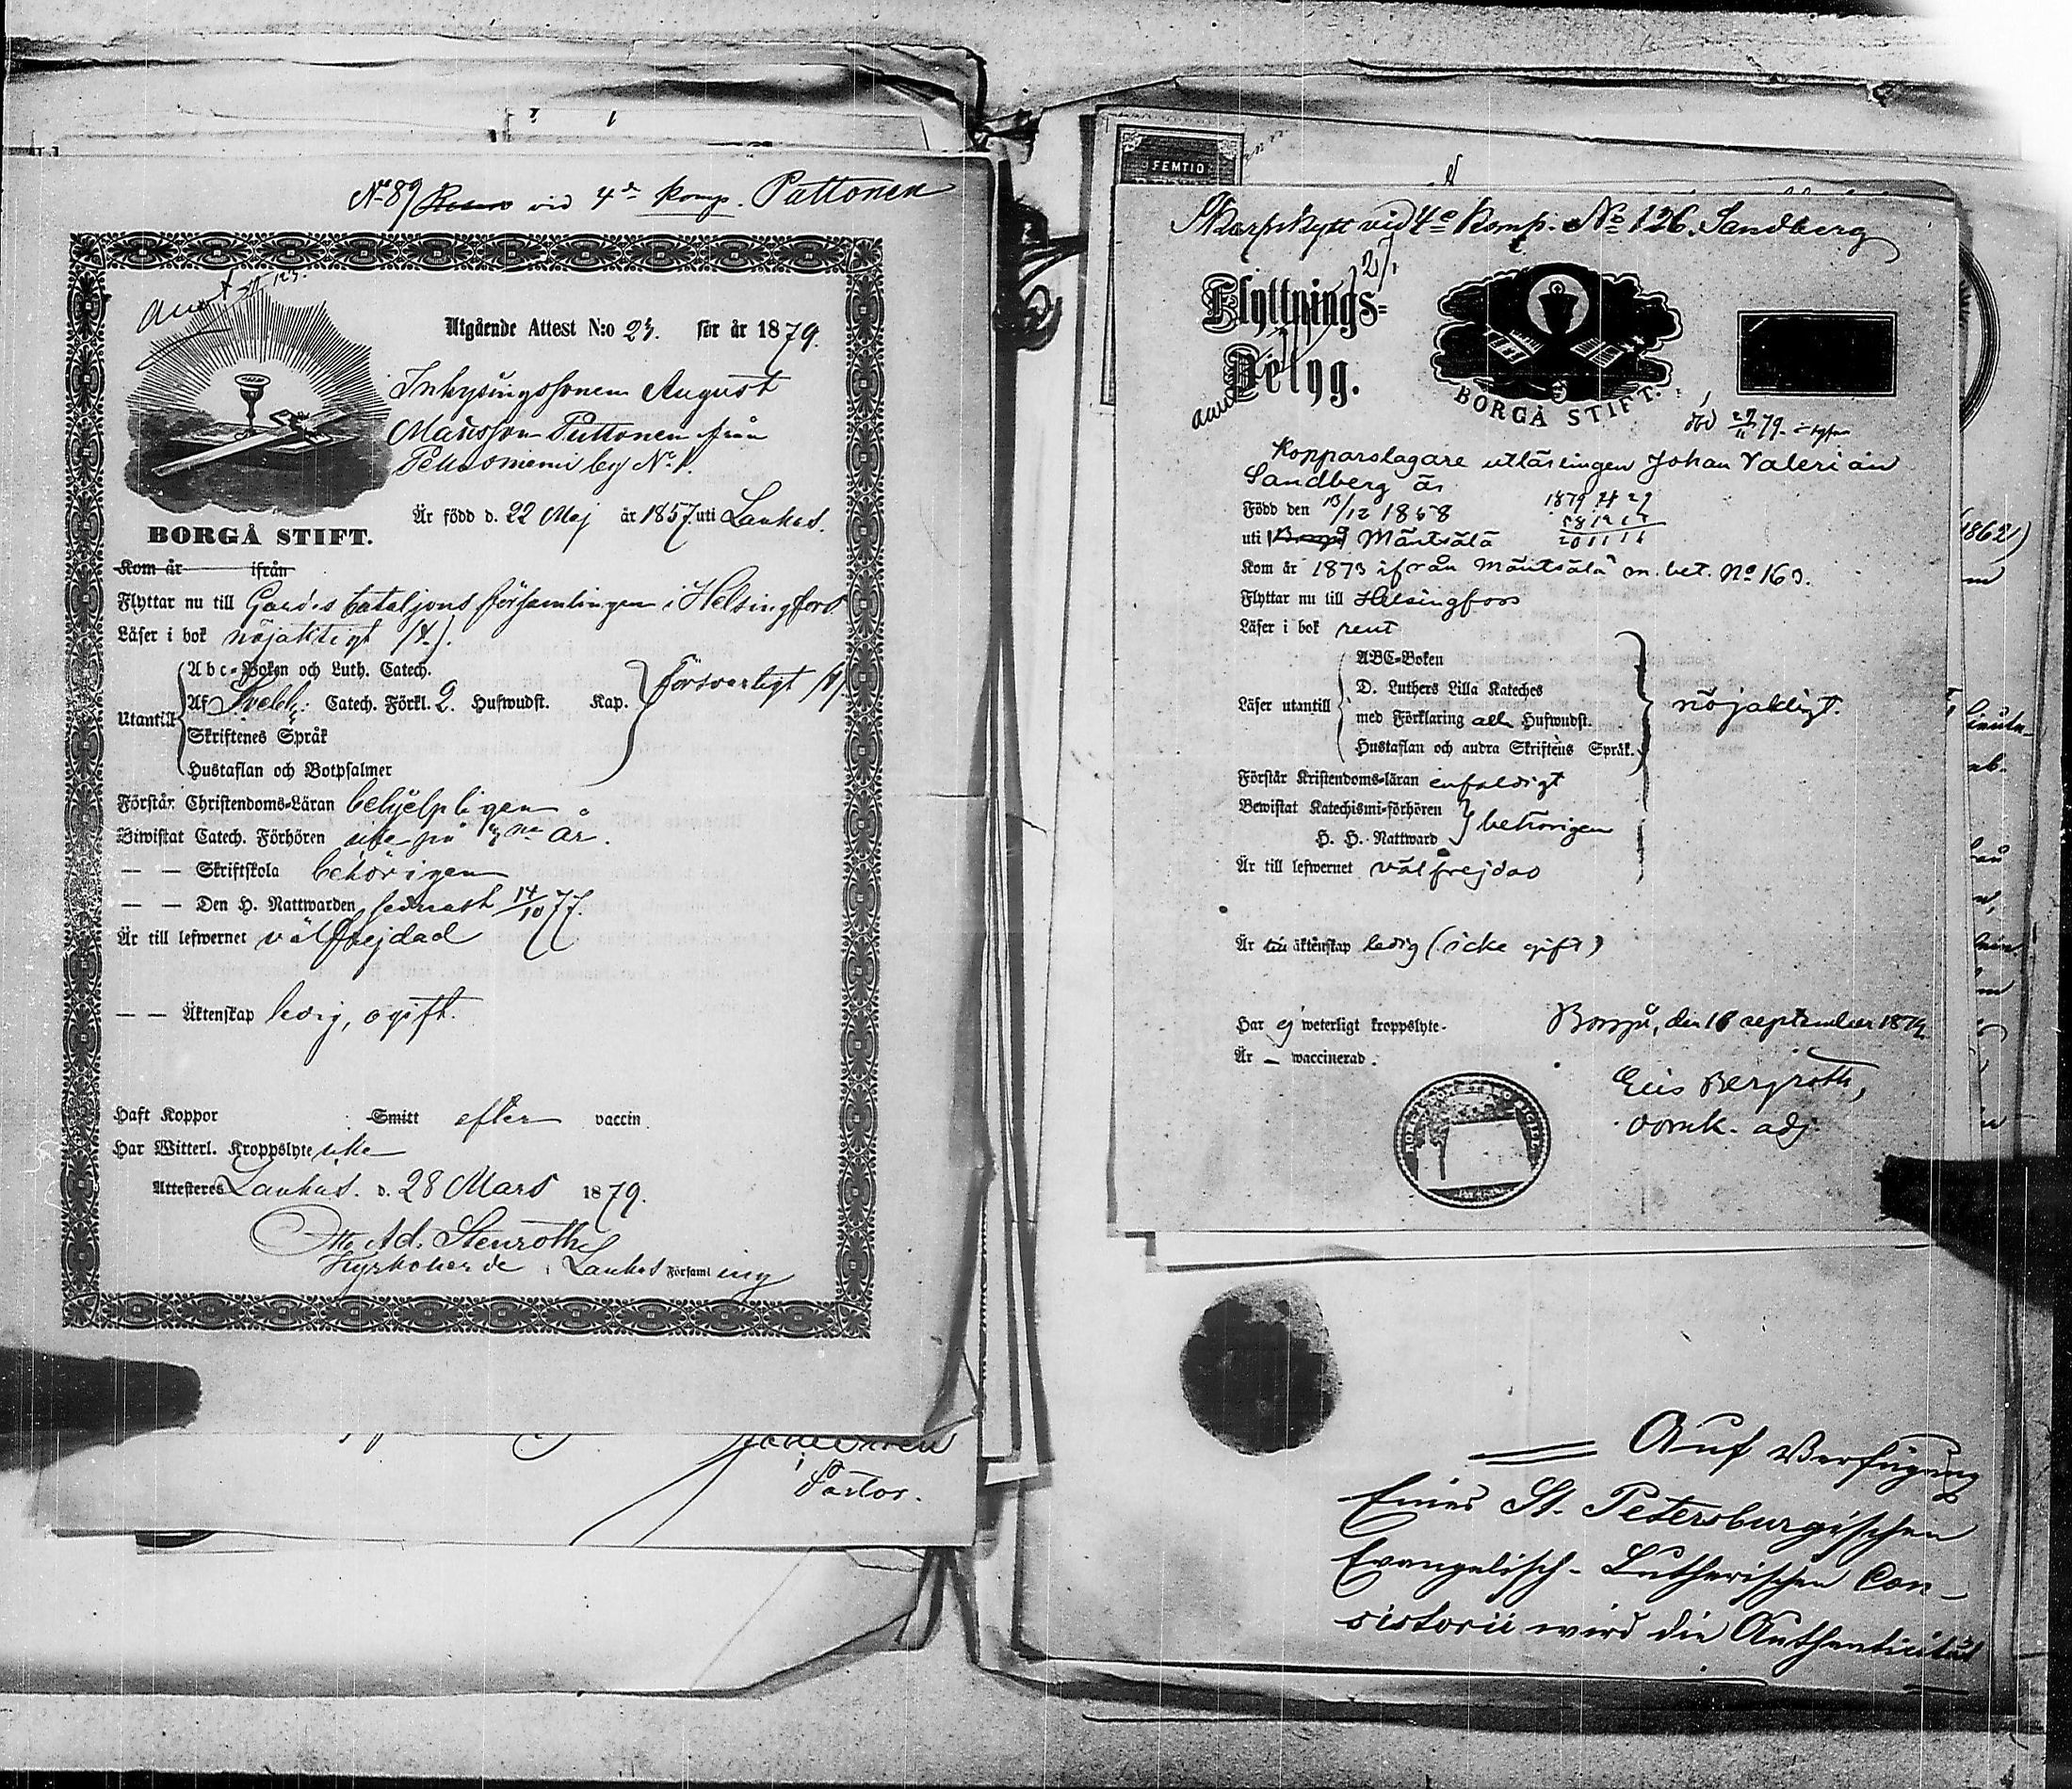 No 89 vid 4de Komp. Puttonen
Utgående Attest N:o 23. för år 1879.
Inhysingssonen August
Mattsson Puttonen från
by No 1.
Är född d. 22 Maj år 1857. uti Laukas.
BORGÅ STIFT.
Kom år ifrån
Flyttar nu till Gardes bataljons församlingen i Helsingfors
Läser i bok nöjaktigt
Utantill
Abc-Boken och Luth. Catech.
Af Svebel. Catech. Förkl. 2. Hufwudst. Kap.
Skriftenes Språk
Hustaflan och Botpsalmer
försvarligt
Förstår Christendoms-Läran behjelpligen
Biwistat Catech. Förhören icke på år.
— — Skriftskola behörigen
— — Den H. Nattwarden senast 14/10 77.
Är till lefwernet välfrejdad
— — Äktenskap ledig, ogift.
Haft Koppor Smitt efter vaccin.
Har Witterl. Kroppslyte icke
Attesteras Laukas. d. 28 Mars 1879.
Otto Ad. Stenroth
Kyrkoherde i Laukas Församling
Pastor.
FEMTIO
Skarpskytt vid 4e Komp. No 126. Sandberg
Flyttnings=
Betyg.
BORGÅ STIFT.
död 29/11 79.
Kopparslagare utlärlingen Johan Valerian
Sandberg är
Född den 13/12 1858
uti Borgå Mäntsälä
Kom år 1873 ifrån Mäntsälä m. bet. No 163.
Flyttar nu till Helsingfors
Läser i bok rent
Läser utantill
ABC-Boken
D. Luthers Lilla Kateches
med Förklaring alla Hufwudst.
Hustaflan och andra Skriftens Språk.
nöjaktigt.
Förstår Kristendoms-läran enfaldigt
Bewistat Katechismi-förhören
H. H. Nattward
behörigen
Är till lefwernet välfrejdad
Är till äktenskap ledig (icke gift)
Har ej weterligt kroppslyte.
Är — waccinerad.
Borgå, den 16 september 1879.
Elis Bergroth,
domk. adj.
1862)
Auf Verfügung
Eines St. Petersburgischen
Evangelisch-Lutherischen Con-
sistorii wird die Authenticität